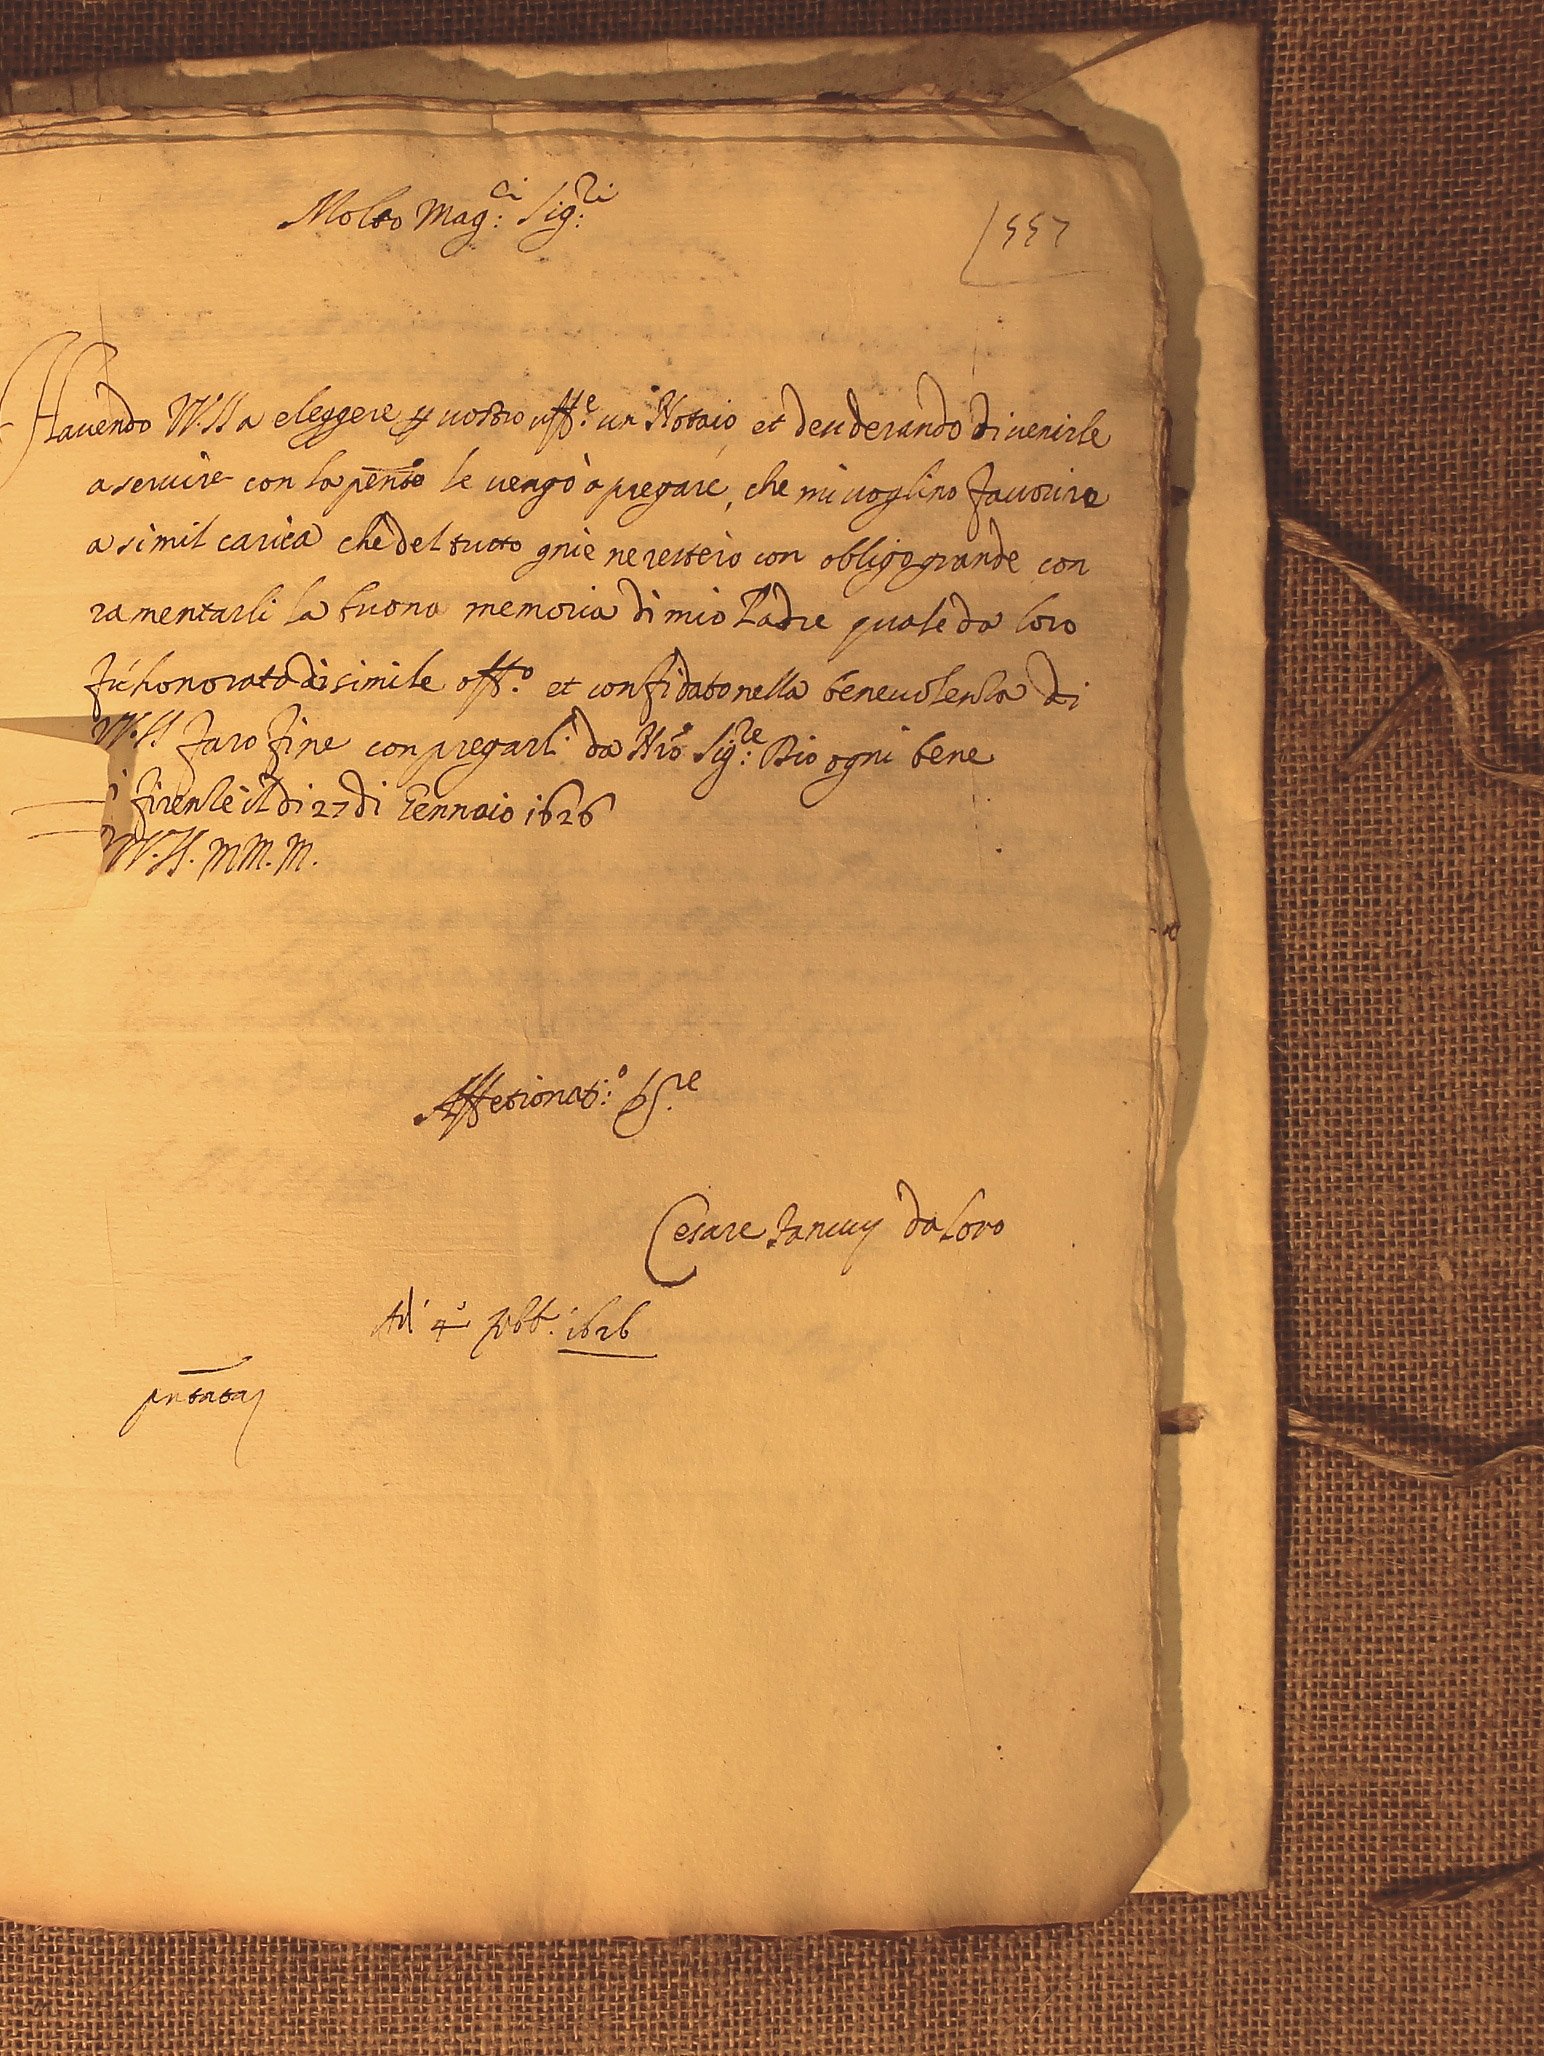 Molto Mag:ci Sig:ri
557
Havendo VV.SS a eleggere p vostro uff:e un Notaio, et desiderando di venirle
a servire con la pente le vengo à pregare, che mi voglino favorire
a simil carica che del tutto gnie ne resterò con obligo grande con
ramentarli la buona memoria di mio Padre quale da loro
fù honorato di simile off:o et confidato nella benevolenza di
VV.SS. faro fine con pregarli da Nro Sig:re Dio ogni bene
di firenze il di 27 di Gennaio 1626
VV.SS. MM.M.
Affetionat:o S.re
Cesare da Loro
Ad 4 febb. 1626
pntata